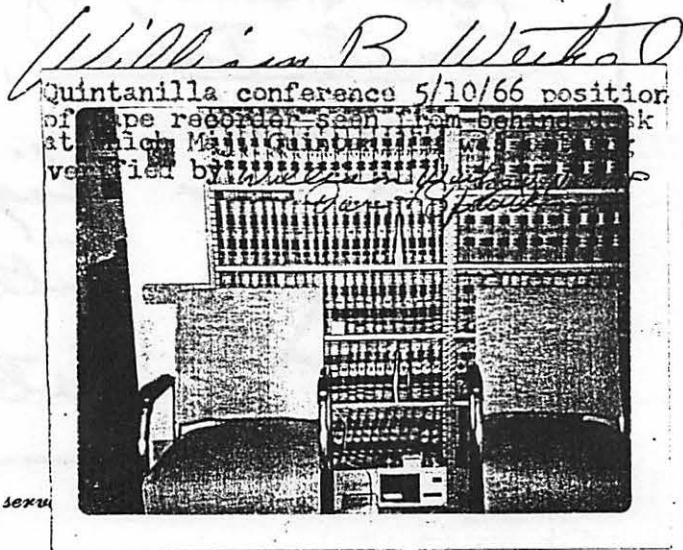 William B Weitzel
Quintanilla conference 5/10/66 position
of tape recorder seen from behind desk
at which Maj. Quintanilla was
verified by William
serv